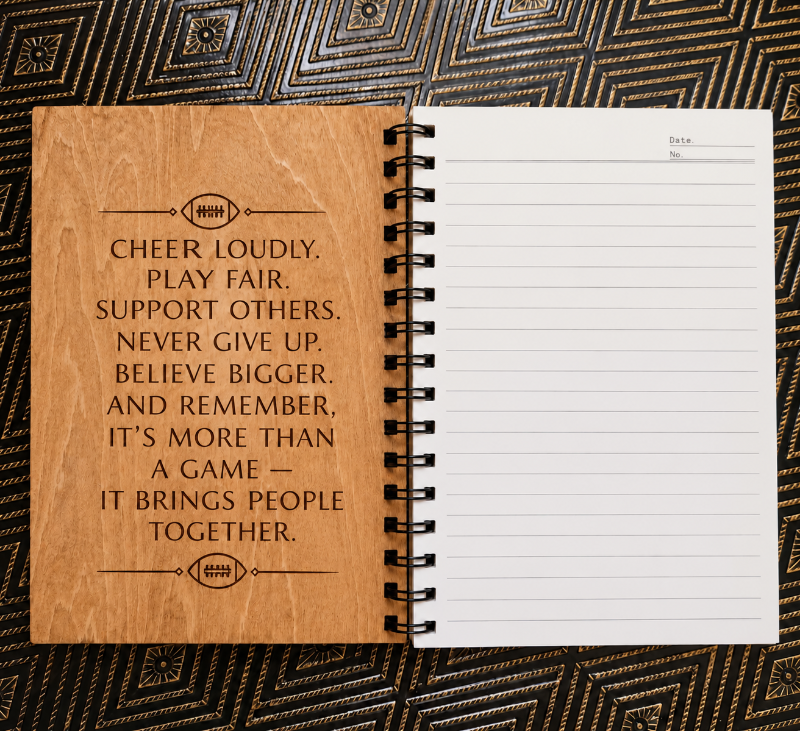 CHEER LOUDLY.
PLAY FAIR.
SUPPORT OTHERS.
NEVER GIVE UP.
BELIEVE BIGGER.
AND REMEMBER,
IT’S MORE THAN
A GAME —
IT BRINGS PEOPLE
TOGETHER.
Date.
No.